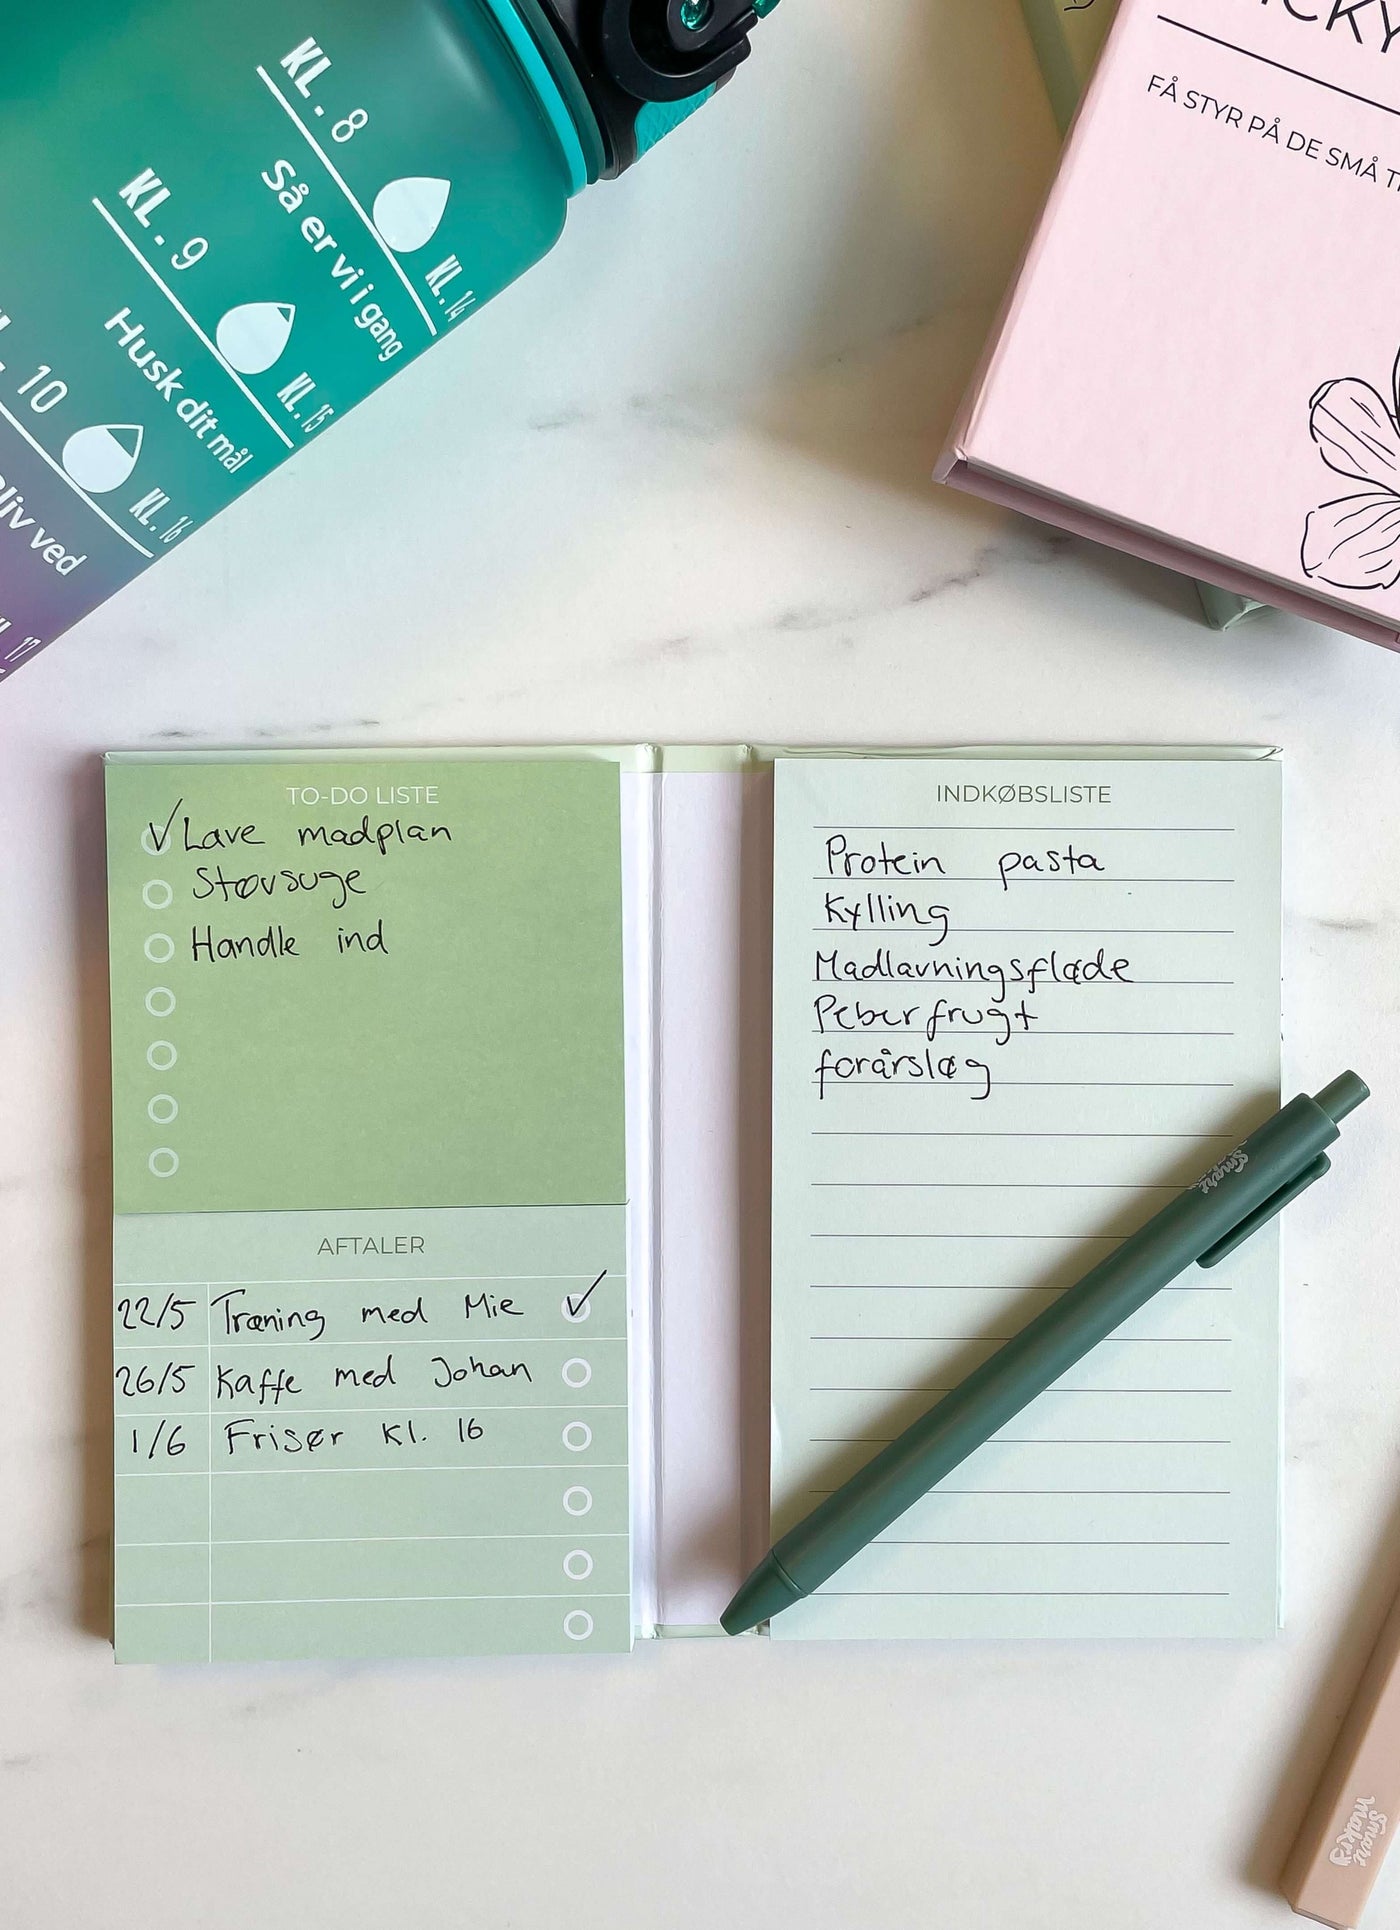 KL. 8
Så er vi i gang
KL. 14
KL. 9
Husk dit mål
KL. 15
10
KL. 16
ved
17
FÅ STYR PÅ DE SMÅ
TO-DO LISTE
Lave madplan
Støvsuge
Handle ind
AFTALER
22/5 Træning med Mie
26/5 Kaffe med Johan
1/6 Frisør Kl. 16
INDKØBSLISTE
Protein pasta
Kylling
Madlavningsfløde
Peberfrugt
forårsløg
Smart
Smart